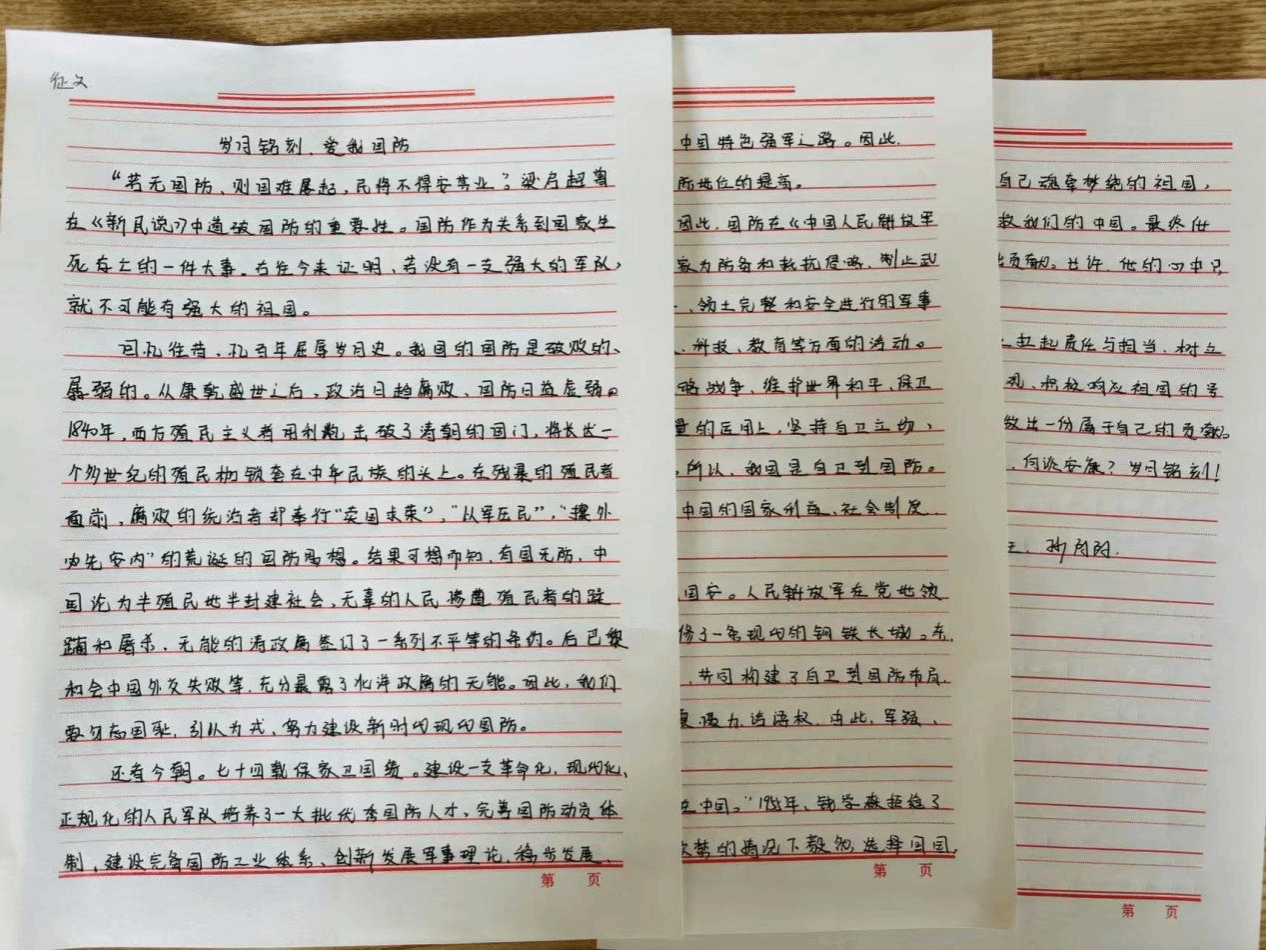 征文
岁月铭刻、爱我国防
“若无国防、则国难屡起，民将不得安其业”，梁启超曾
在《新民说》中道破国防的重要性。国防作为关系到国家生
死存亡的一件大事。古往今来证明，若没有一支强大的军队，
就不可能有强大的祖国。
回忆往昔，孔百年屈辱岁月史。我国的国防是破败的、
孱弱的。从康乾盛世之后，政治日趋腐败、国防日益虚弱。
1840年，西方殖民主义者用利炮击破了清朝的国门，将长达一
个多世纪的殖民枷锁套在中华民族的头上。在残暴的殖民者
面前，腐败的统治者却奉行“卖国求荣”，“以军压民”，“攘外
必先安内”的荒诞的国防思想。结果可想而知，有国无防，中
国沦为半殖民地半封建社会，无辜的人民惨遭殖民者的蹂
躏和屠杀，无能的清政府签订了一系列不平等的条约。后巴黎
和会中国外交失败等，充分暴露了北洋政府的无能。因此，我们
要勿忘国耻，引以为戒、努力建设新时代现代国防。
还看今朝。七十四载保家卫国线。建设一支革命化，现代化、
正规化的人民军队培养了一大批优秀国防人才，完善国防动员体
制，建设完备国防工业体系、创新发展军事理论，稳步发展、
第 页
中国特色强军之路。因此，
际地位的提高。
因此，国防在《中国人民解放军
家为防备和抵抗侵略，制止武
、领土完整和安全进行的军事
、科技、教育等方面的活动。
略战争，维护世界和平，保卫
量的运用上，坚持自卫立场，
所以、我国是自卫型国防。
中国的国家利益、社会制度、
国安。人民解放军在党地领
修了一条现代的钢铁长城。东，
，共同构建了自卫型国防布局，
影响力、话语权，由此，军强、
在中国。”1955年、钱学森拒绝了
软禁的情况下毅然选择回国，
第 页
自己魂牵梦绕的祖国，
救我们的中国。最终他
出贡献。也许，他的心中只
扛起责任与担当，树立
观，积极响应祖国的号
做出一份属于自己的贡献。
，何谈安康？岁月铭刻！
第 页